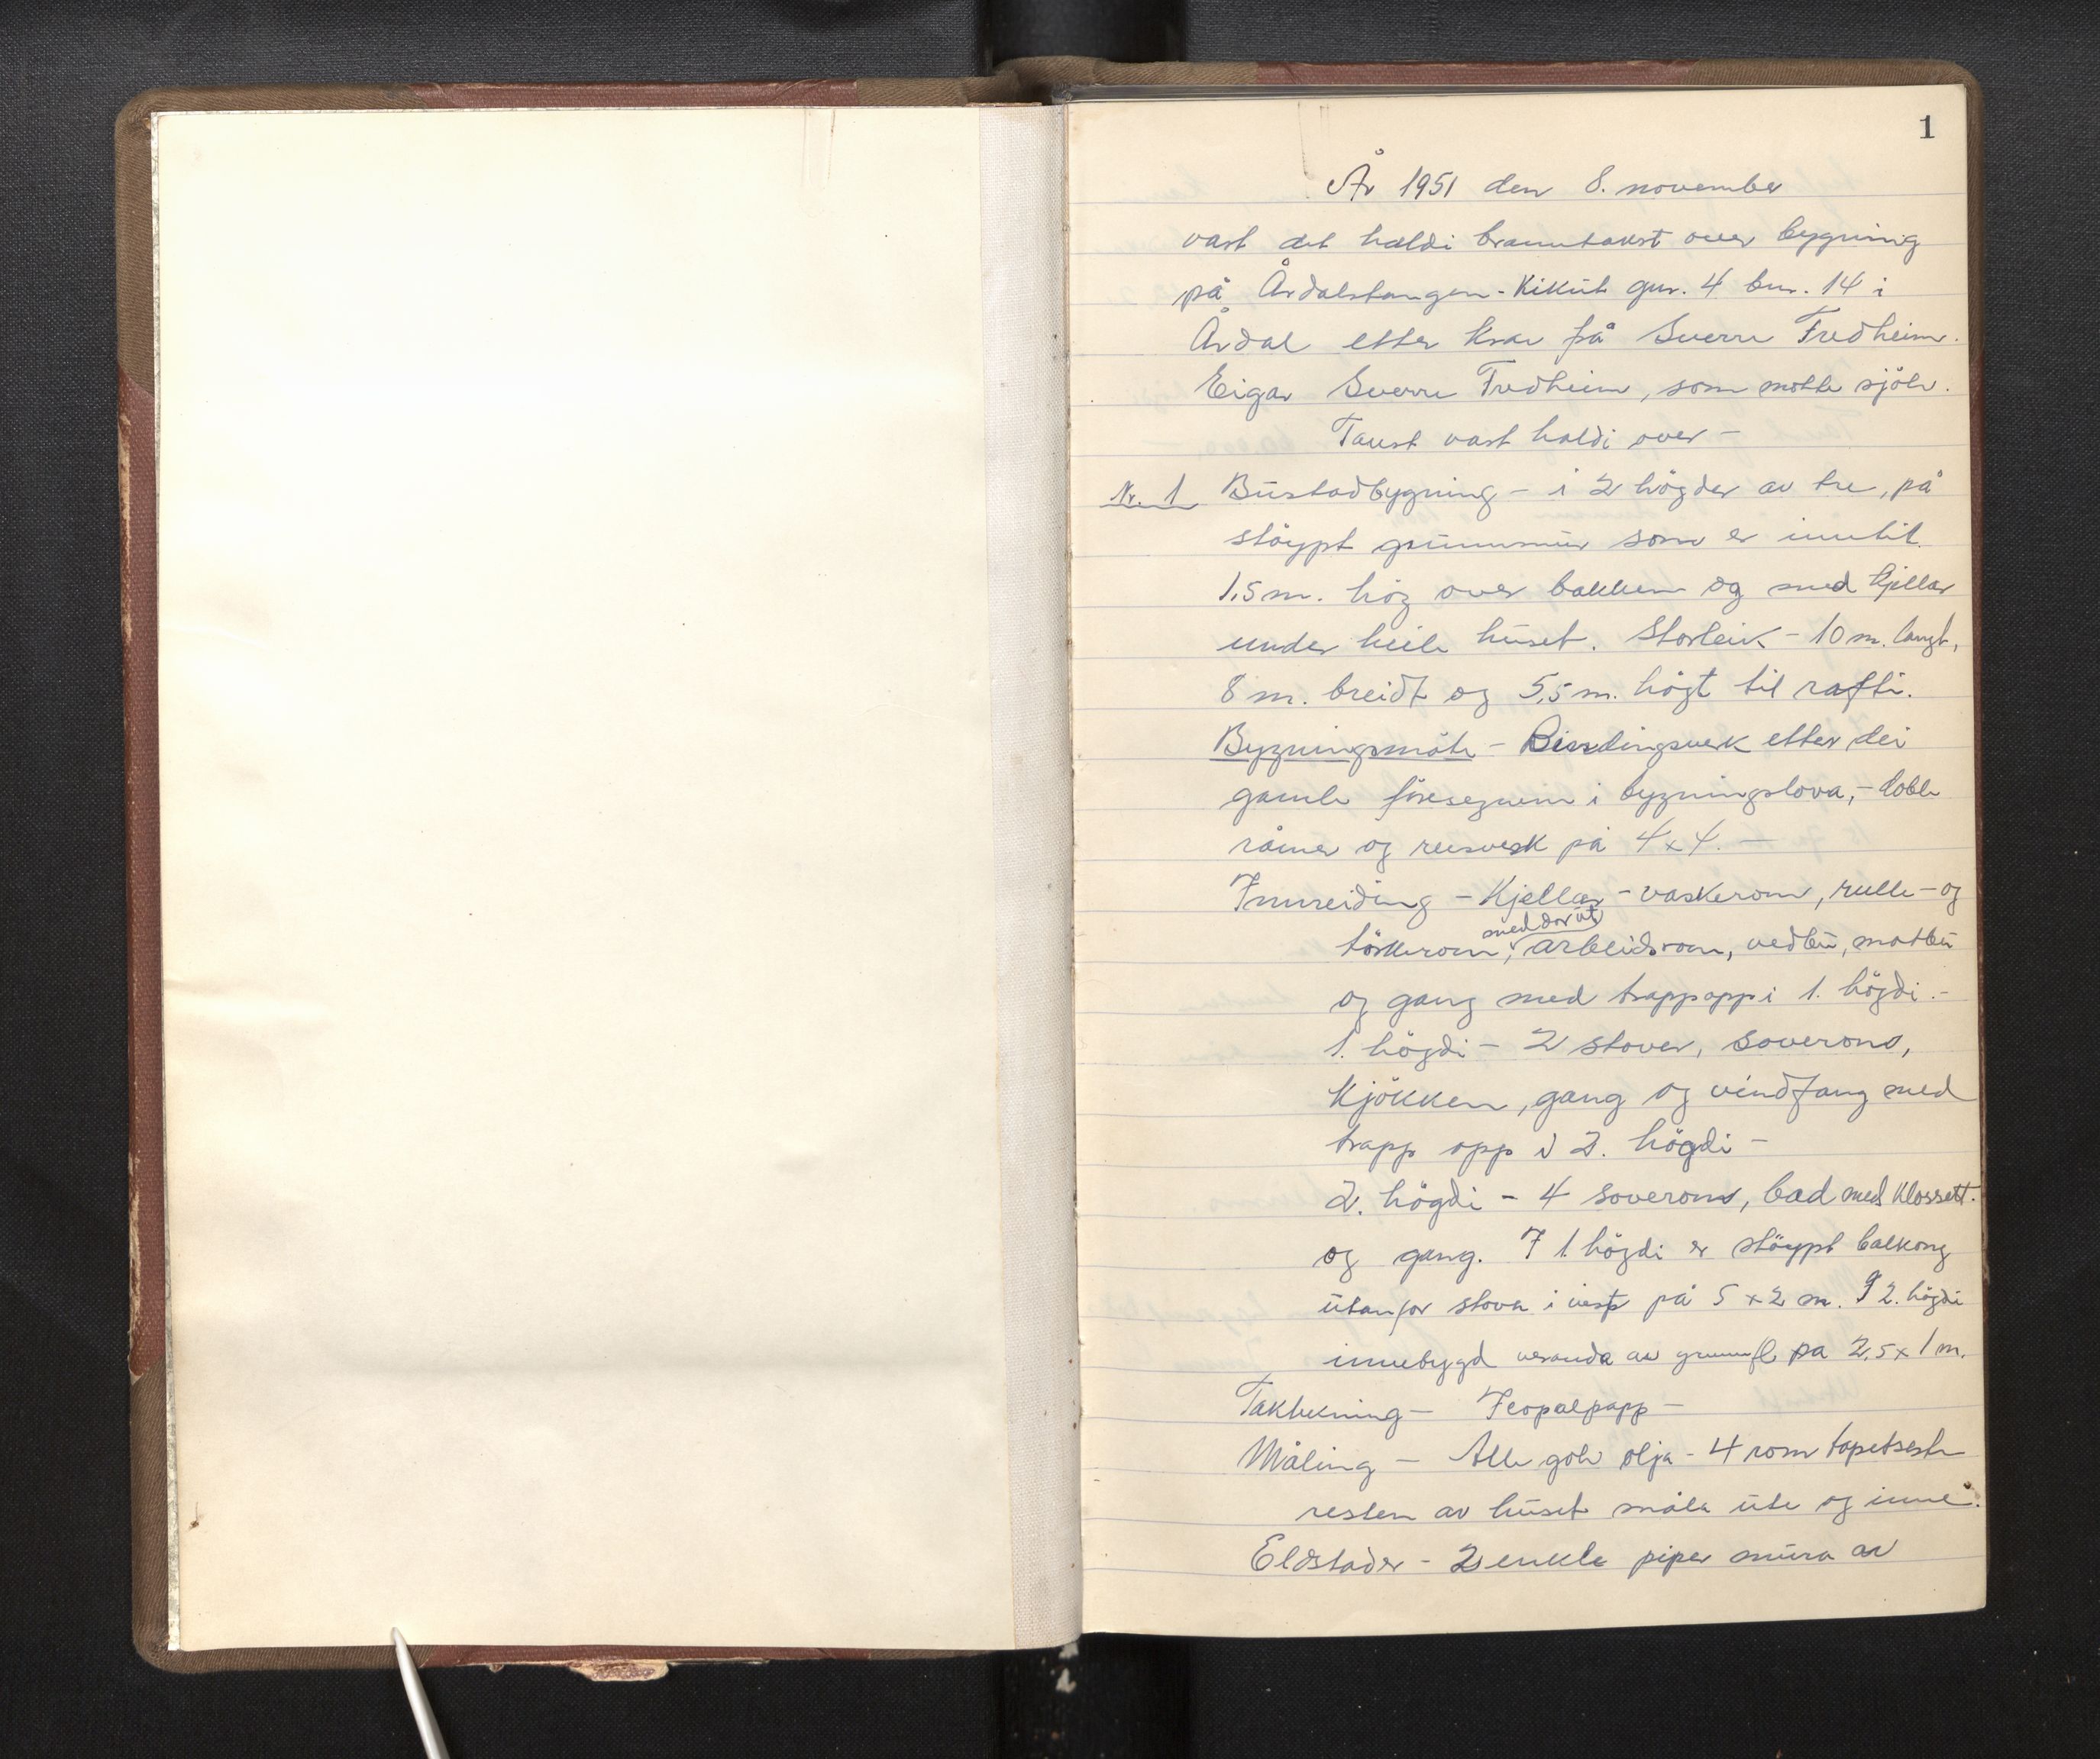 1
År 1951 den 8. november
vart det haldi branntakst over bygning
på Årdalstangen - Kikut gnr. 4 bnr. 14 i
Årdal etter krav frå Sverre Fredheim.
Eigar Sverre Fredheim, som møtte sjølv.
Takst vart haldi over -
Nr. 1 Bustadbygning - i 2 högder av tre, på
stöypt grunnmur som er inntil
1,5 m. hög over bakken og med kjellar
under heile huset. Storleik - 10 m. langt,
8 m. breidt og 5,5 m. högt til rafti.
Bygningsmåte - Bindingsverk etter dei
gamle föresegnene i bygningslova, - doble
råmer og reisverk på 4 x 4. -
Innreiding - Kjellar - vaskerom, rulle - og
med dør ut
törkerom, arbeidsrom, vedbu, matbu
og gang med trapp opp i 1. högdi. -
1. högdi - 2 stover, soverom,
kjökken, gang og vindfang med
trapp opp i 2. högdi -
2. högdi - 4 soverom, bad med klossett
og gang. I 1 högdi er stöypt balkong
utanfor stova i vest på 5 x 2 m. I 2. högdi
innebygd veranda av grunnfl. på 2,5 x 1 m.
Taktekning - Icopalpapp -
Måling - Alle golv olja - 4 rom tapetserte
resten av huset måla ute og inne.
Eldstader - 2 enkle piper mura av